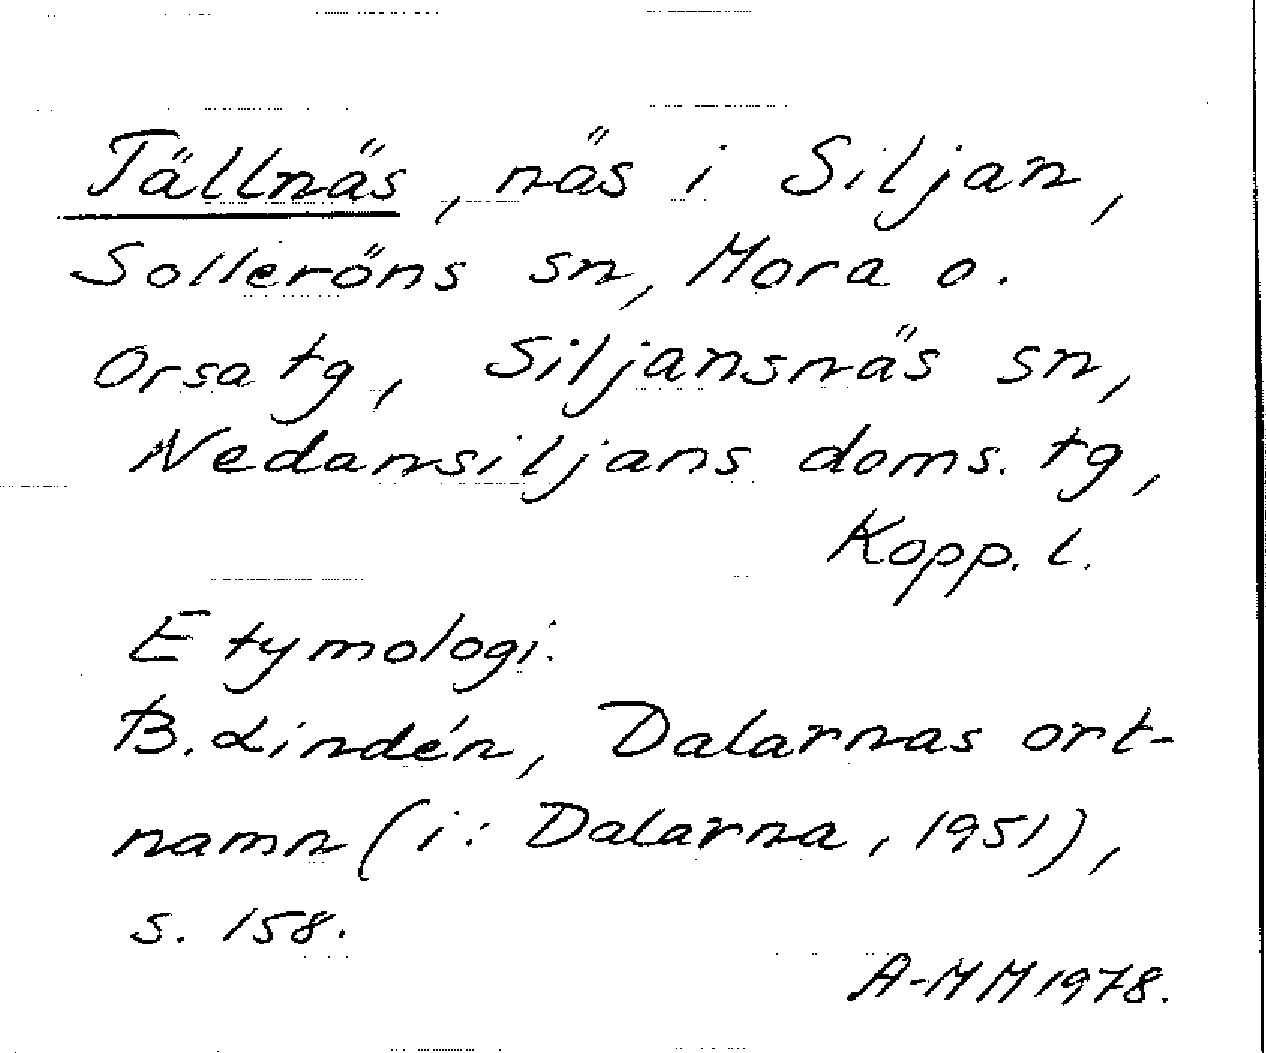 Tällnäs, näs i Siljan,
Solleröns sn, Mora o.
Orsa tg, Siljansnäs sn,
Nedansiljans doms. tg,
Kopp. l.
Etymologi:
B. Lindén, Dalarnas ort-
namn (i: Dalarna, 1951),
s. 158.
A-MM 1978.